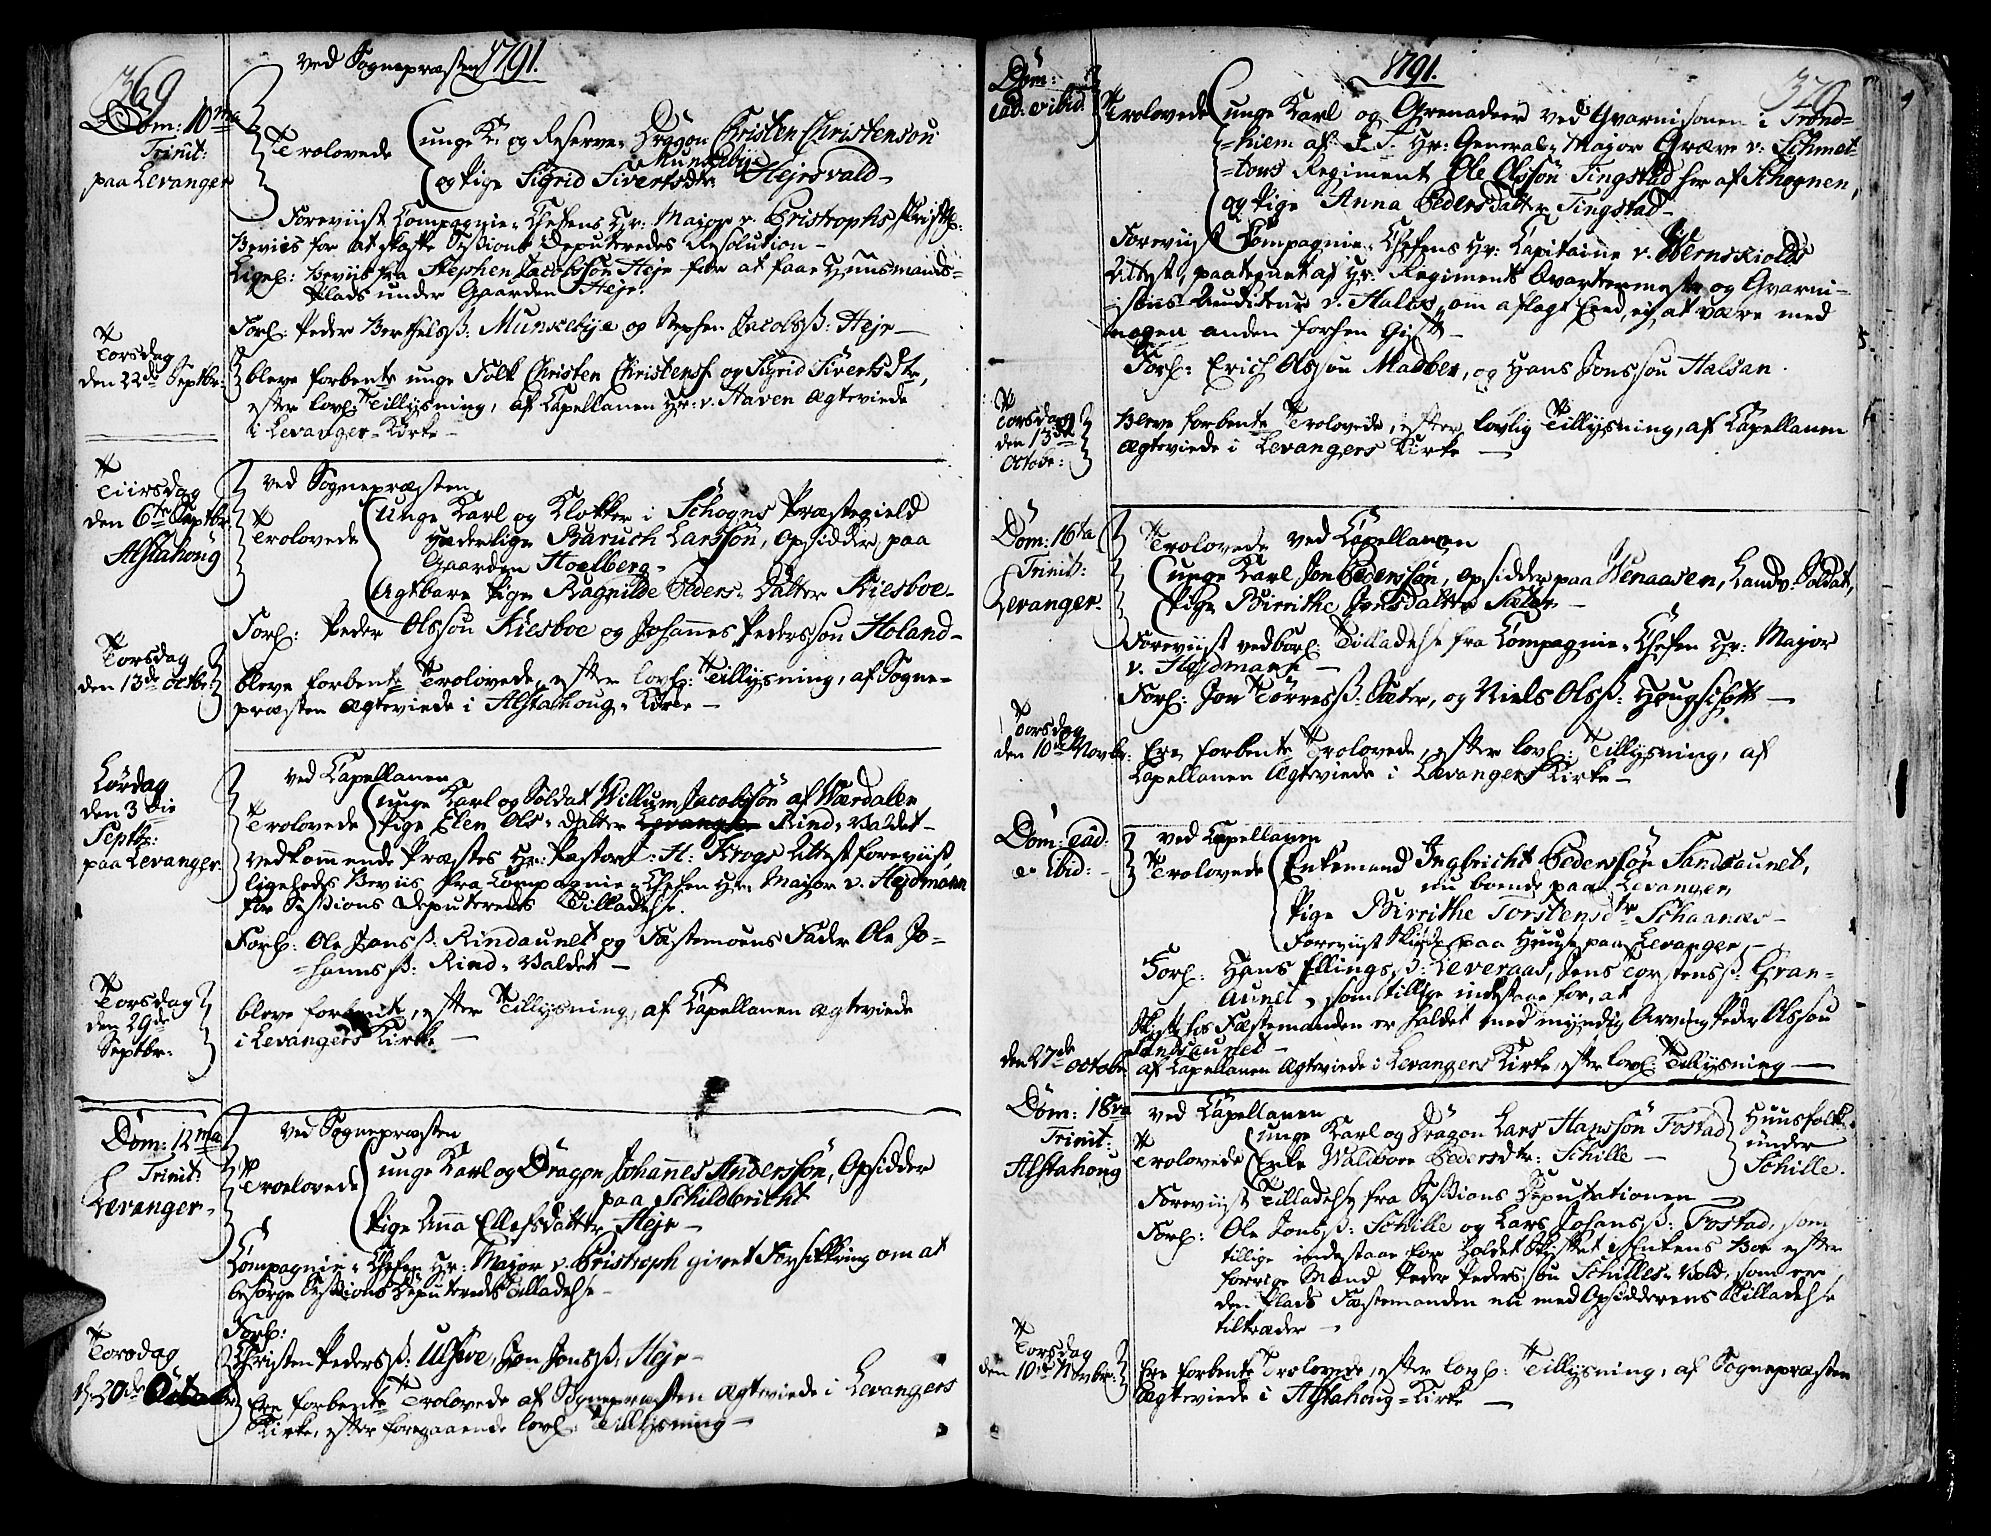 369
ved Sognepræsten 1791.
Dom: 10ma
Trinit:
paa Levanger
Trolovede
unge K. og Reserve-Dragon Christen Christenson
Munkebye
og Pige Sigrid Sivertsdtr Hejrsvald-
Foreviist Compagnie-Chefens Hr: Major v. Bristrophs skriftl:
Beviis for at skaffe Sessions Deputeredes Resolution-
Ligel: Beviis fra Stephen Jacobssøn Heje for at faae Huusmands-
Plads under Gaarden Heje.
Forl: Peder Berthelss: Munkebye og Stephen Jacobss: Heje-
Torsdag
den 22de Septbr:
bleve forbente unge Folk Christen Christens: og Sigrid Sivertsdtr,
efter lovl: Tillysning, af Capellanen Hr: v. Haven Ægteviede
i Levanger-Kirke-
Tiirsdag
den 6te Septbr
Alstahoug
ved Sognepræsten
Trolovede
unge Karl og Klokker i Schogns Præstegield
Hæderlige Baruch Larssøn, Opsidder paa
Gaarden Hoelberg-
Agtbare Pige Ragnilde Peders-Datter Kiesboe-
Forl: Peder Olssøn Kiesboe og Johannes Pederssøn Holand-
Torsdag
den 13de Octbr
bleve forbente Trolovede, efter lovl: Tillysning, af Sogne-
præsten Ægteviede i Alstahoug-Kirke-
Lørdag
den 3die
Septbr:
paa Levanger
ved Capellanen
Trolovede
unge Karl og Soldat Willum Jacobssøn af Værdalen
Pige Elen Ols-Datter Levanger Rind-Valdet-
Vedkommende Præstes Hr: Pastor H: Krogs Attest foreviist,
ligeledes Beviis fra Compagnie-Chefen Hr: Major v. Hejdmann
for Sessions Deputeredes Tilladelse.
Forl: Ole Janss: Rindaunet og Fæstemøens Fader Ole Jo-
hannss: Rind-Valdet-
Torsdag
den 29de
Septbr:
bleve forbente, efter Tillysning, af Capellanen Ægteviede
i Levangers Kirke-
Dom: 12ma
Trinit:
Levanger-
ved Sognepræsten
Trolovede
unge Karl og Dragon Johannes Anderssøn, Opsidder
paa Schildbericht
Pige Anna Ellefsdatter Heje-
Compagnie-Chefen Hr: Major v. Bristroph givet Forsikkring om at
besørge Sessions Deputeredes Tilladelse-
Forl:
Christen Pederss: Ulfve, Jon Jonss: Heje-
Torsdag
d. 20de Octobr
Ere forbente Trolovede af Sognepræsten Ægteviede i Levangers
Kirke, efter foregaaende lovl: Tillysning-
1791.
370
Dom:
ead. et ibid.
Trolovede
unge Karl og Grenadeer ved Gvarnisonen i Trond-
hiem af S. T. Hr: General-Major Græve v: Schmet-
tows Regiment Ole Olssøn Tingstad her af Schognen,
og Pige Anna Pedersdatter Tingstad-
Foreviist Compagnie-Chefens Hr: Capitaine v. Wernskiolds
Attest, paategnet af Hr: Regiments Qvarteermester og Gvarni-
sons-Auditeur v. Hals, om aflagt Eed, ej at være med
nogen anden forhen Gift-
Forl: Erich Olssøn Madber, og Hans Jonssøn Halsan.
Torsdag
den 13de
Octobr:
Bleve forbente Trolovede, efter lovlig Tillysning, af Capellanen
Ægteviede i Levangers Kirke-
Dom: 16ta
Trinit:
Levanger.
Trolovede ved Capellanen
unge Karl Jon Pederssøn, opsidder paa Wenaasen, Landv: Soldat,
Pige Birrithe Jonsdatter Sæter-
Foreviist vedbørl: Tilladelse fra Compagnie-Chefen Hr: Major
v. Hejdmann-
Forl: Jon Torress: Sæter, og Niels Olss: Hougschott-
Torsdag
den 10de Novbr:
Ere forbente Trolovede, efter lovl: Tillysning, af
Capellanen Ægteviede i Levangers Kirke-
Dom: ead:
et ibid:
ved Capellanen
Trolovede
Enkemand Ingbricht Pederssøn Sandsaunet,
nu boende paa Levangen
Pige Birrithe Torstensdtr Schaanes-
Foreviist Skiøde paa Huus paa Levanger-
Forl: Hans Ellingss: Leveraas, Jens Torstenss: Gran-
aunet, som tillige indestaae for, at
Skifte hos Fæstemanden er holdet med myndig Arving Peder Olssøn
Sandsaunet-
den 27de Octobr
af Capellanen Ægteviede i Levangers Kirke, efter lovl: Tillysning-
Dom: 18va
Trinit:
Alstahoug
ved Capellanen
Trolovede
unge Karl og Dragon Lars Hanssøn Fostad
Enke Waldbore Pedersdtr: Schille-
Huusfolk
under
Schille.
Foreviist Tilladelse fra Sessions Deputationen-
Forl: Ole Jonss: Schille og Lars Johanss: Fostad, som
tillige indestaae for holdet Skiftet i Enkens Boe efter
forrige Mand Peder Pederssøn Schilles-Vold, som er
den Plads Fæstemanden nu med Opsidderens Tilladelse
tiltræder-
Torsdag
den 10de Novbr:
Ere forbente Trolovede, efter lovl: Tillysning, af Sognepræsten
Ægteviede i Alstahoug-Kirke-